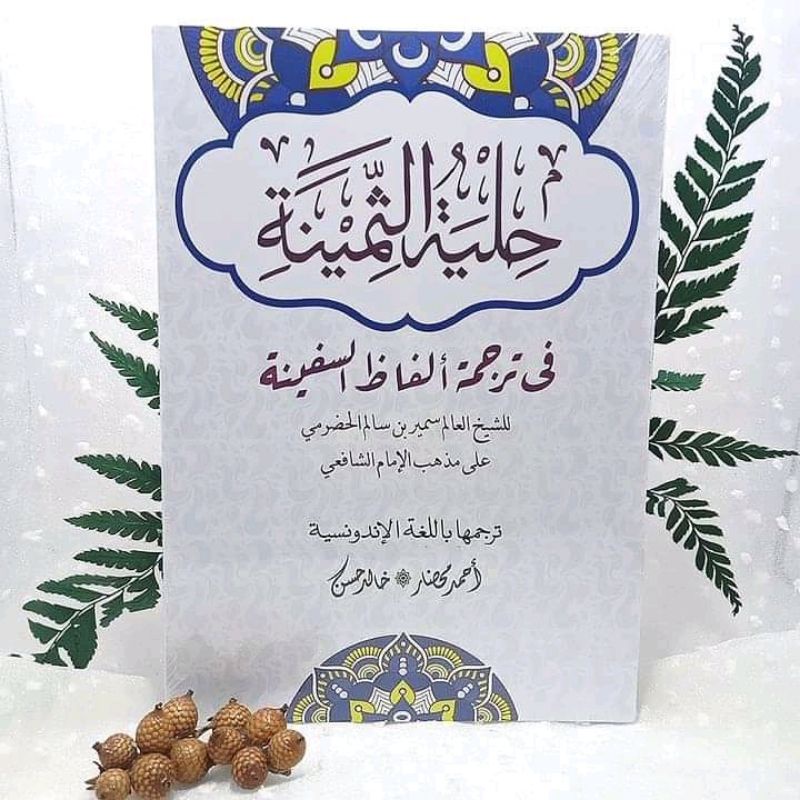 حِلْيَةُ الثَّمِيْنَةِ
فى ترجمة ألفاظ السفينة
للشيخ العالم سمير بن سالم الحضرمي
على مذهب الإمام الشافعي
ترجمها باللغة الإندونسية
أحمد محضار خالد حسن